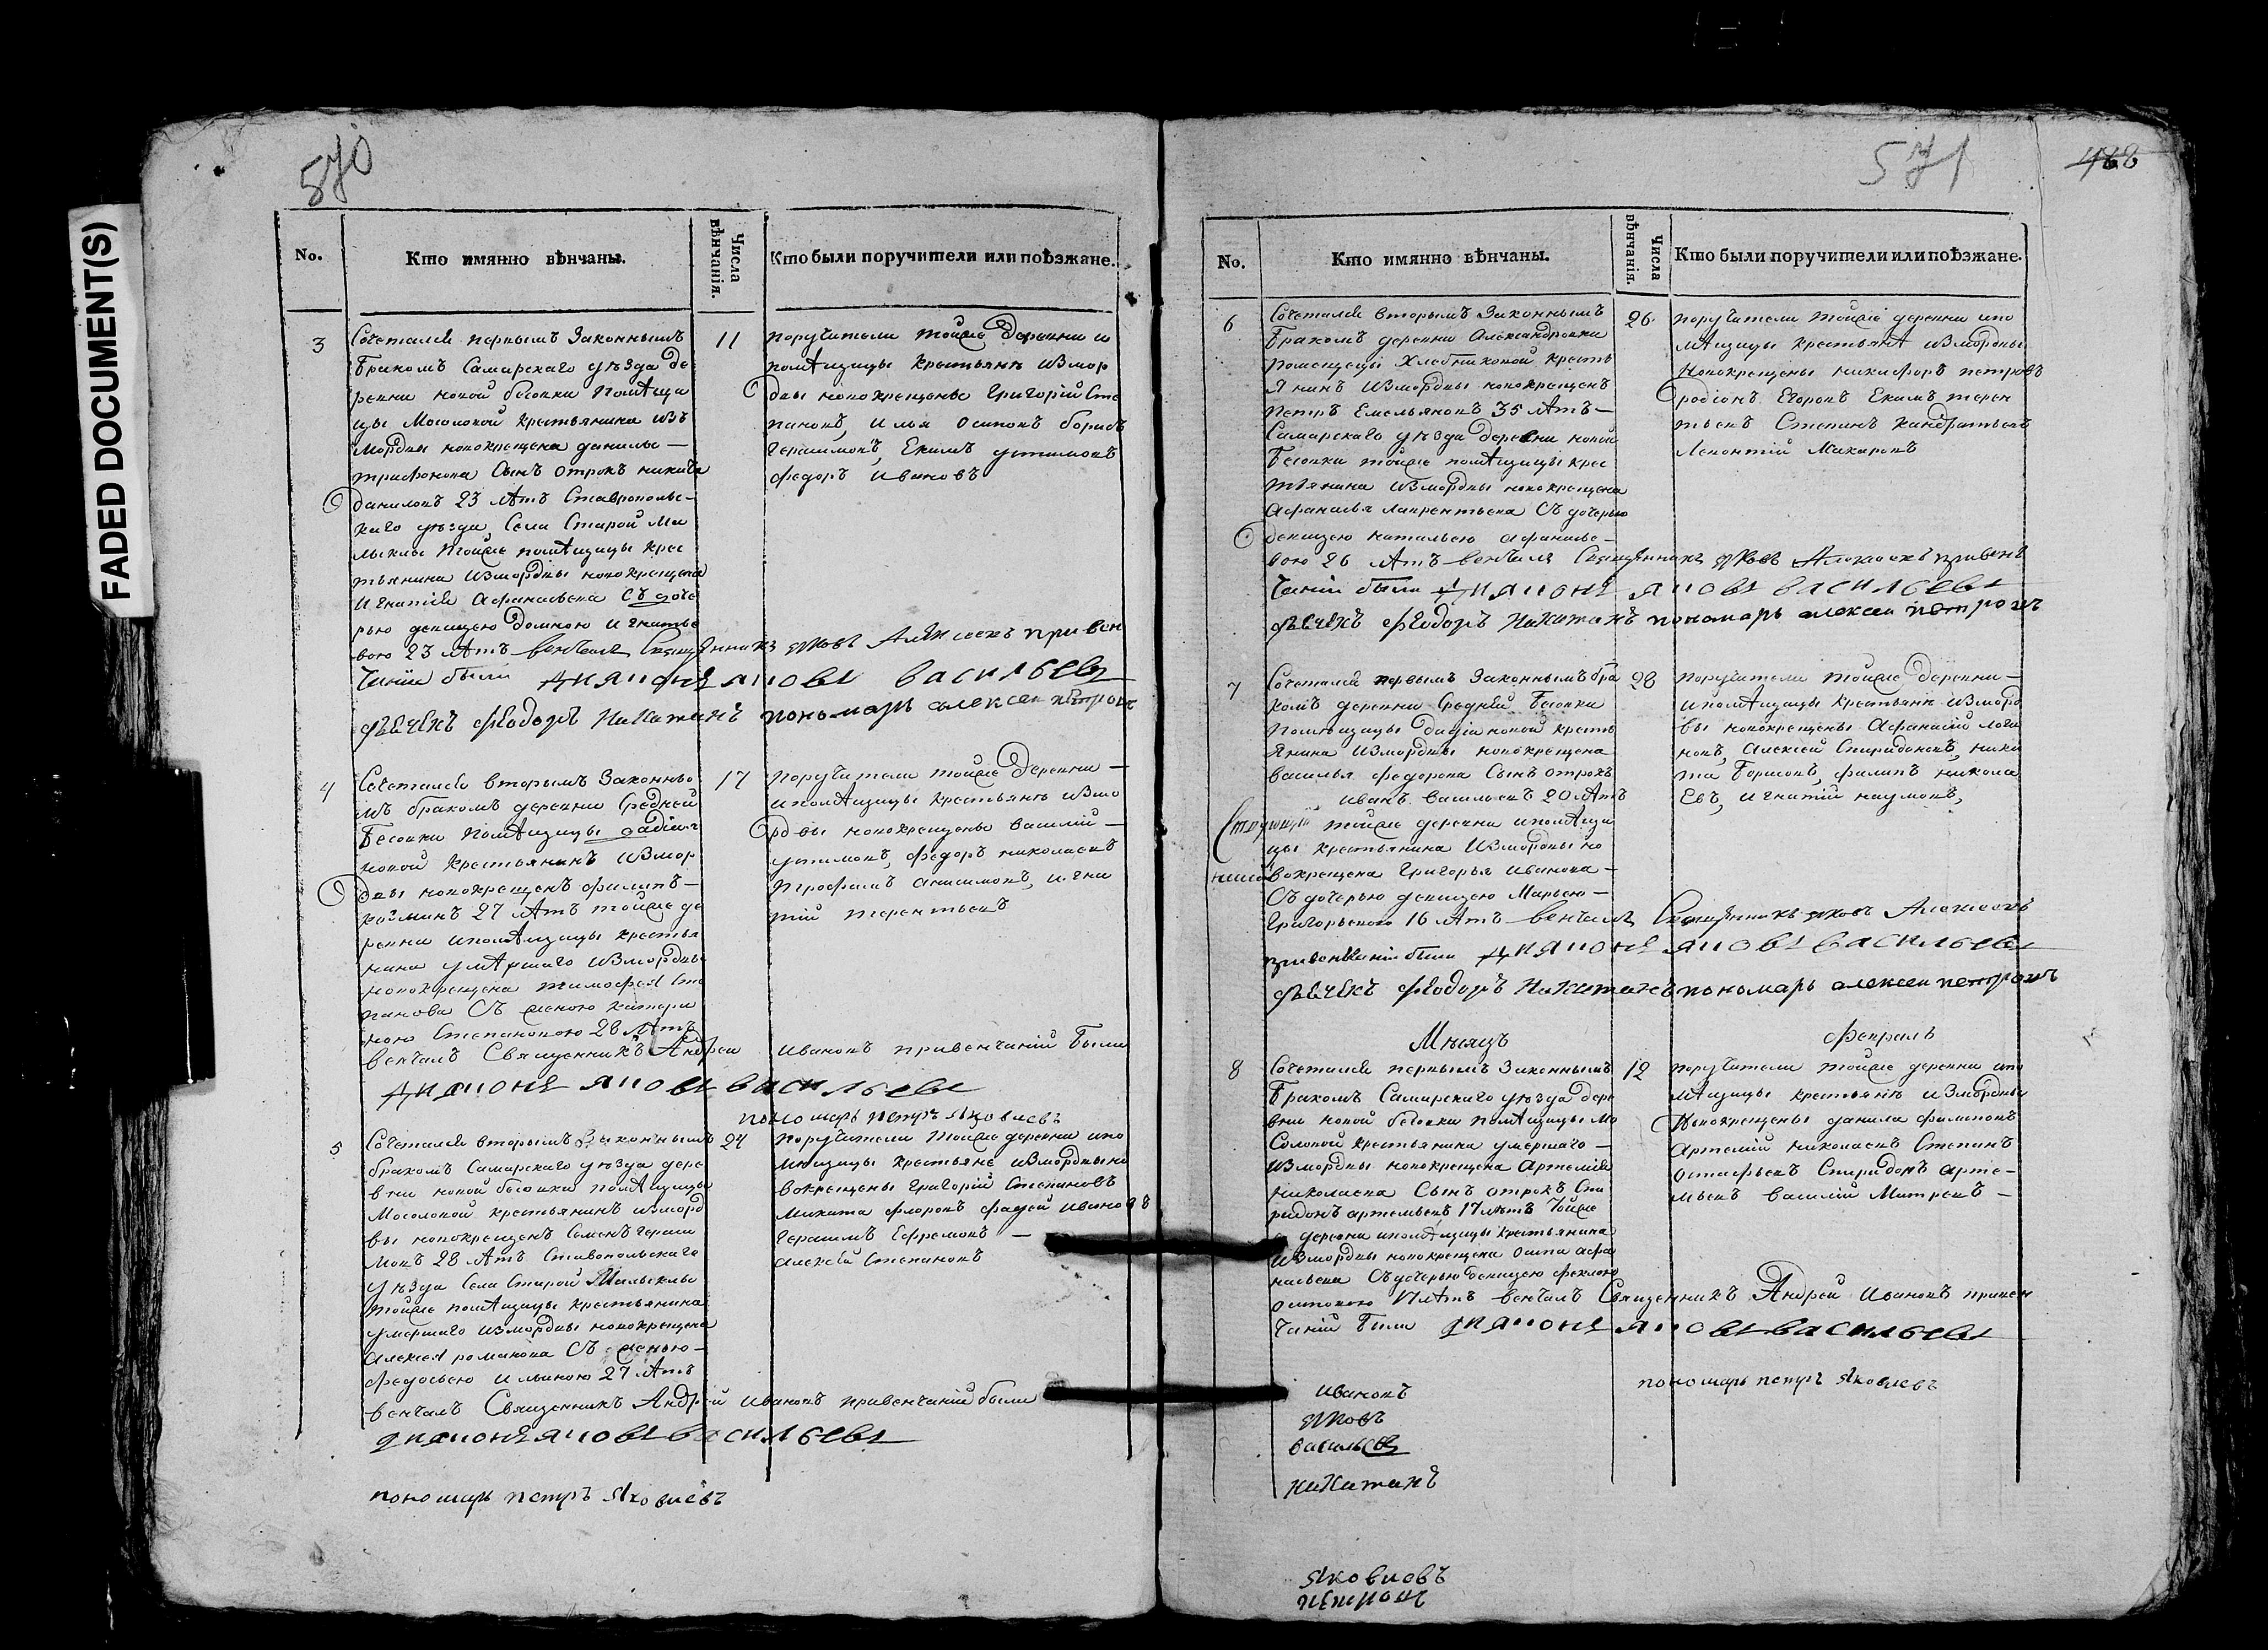 FADED DOCUMENT(S)
570
No.
Кто имянно вѣнчаны.
Числа вѣнчанія.
Кто были поручители или поѣзжане.
3
Сочетался первымъ Законнымъ
бракомъ Самарскаго уѣзда де
ревни новой бесовки помѣщи
цы Мосоловой крестьянина изъ
мордвы новокрещена данилы —
трифонова Сынъ отрокъ никита
даниловъ 23 лѣтъ Ставрополь-
каго уѣзда Села Старой Ма
лыклы тойже помѣщицы крес
тьянина измордвы новокрещена
Игнатія Афанасьева Съ доче
рью девицею домною игнатье
вою 23 лѣтъ венчалъ Священникъ яковъ Алексеевъ привен
чаніи были диаконъ яковъ васильевъ
дьячекъ феодоръ никитинъ пономарь алексеи петровъ
11
поручители тойже деревни и
помѣщицы крестьянѣ измор
двы новокрещены григорій Сте
пановъ, илья осиповъ борисъ
герасимовъ, Екимъ устимовъ
федоръ ивановъ
4
Сочетался вторымъ Законны
мъ бракомъ деревни Средней
бесовки помѣщицы дадіа
новой крестьянинъ измор
двы новокрещенъ филипъ —
козминъ 27 лѣтъ тойже де
ревни ипомѣщицы крестья
нина умѣршаго измордвы
новокрещена тимофея Сте
панова Съ женою катери
ною Степановою 28 лѣтъ
венчалъ Священникъ Андреи ивановъ привенчаніи были
диаконъ яковъ васильевъ
пономарь петръ яковлевъ
17
поручители тойже деревни —
ипомѣщицы крестьянѣ измо
рдвы новокрещены василій —
устимовъ, федоръ николаевъ
терофеъ анисимовъ, игна
тій терентьевъ
5
Сочетался вторымъ Законнымъ
бракомъ Самарскаго уѣзда дере
вни новой бесовки помѣщицы
Мосоловой крестьянинъ изморд
вы новокрещенъ Семенъ гераси
мовъ 28 лѣтъ Ставопольскаго
уѣзда Села Старой Малыклы
тойже помѣщицы крестьянина
умершаго измордвы новокрещена
алексея романова Съ женою —
федосьею ильиною 27 лѣтъ
венчалъ Священникъ Андрей ивановъ привенчаніи были
диаконъ яковъ васильевъ
пономарь петръ яковлевъ
24
поручители тойже деревни ипо
мѣщицы крестьяне измордвы но
вокрещены григорій Степановъ
Микита флоровъ фадей ивановъ
герасимъ Ефремовъ —
алексѣй Степановъ
571
No.
Кто имянно вѣнчаны.
Числа вѣнчанія.
Кто были поручители или поѣзжане.
6
Сочетался вторымъ Законнымъ
бракомъ деревни Александровки
помещецы Хлебниковой кресть
янинъ измордвы новокрещенъ
петръ Емельяновъ 35 лѣтъ —
Самарскаго уѣзда деревни новой
бесовки тойже помѣщицы крес
тьянина измордвы новокрещена
афанасья лаврентьева Съ дочерью
девицею натальею афанасье-
вою 26 лѣтъ венчалъ Священникъ яковъ Алексеевъ привен
чаніи были диаконъ яковъ васильевъ
дьячекъ феодоръ никитинъ пономарь алексеи петровъ
26
поручители тойже деревни ипо
мѣщицы крестьянѣ измордвы
новокрещены никифоръ петровъ
родіонъ Егоровъ Екимъ терен
тьевъ Степанъ кандратьевъ
Леонтій Макаровъ
7
Сочетался первымъ Законнымъ бра
комъ деревни Средней бесовки
помѣщицы дадіановой кресть
янина измордвы новокрещена
василья федорова Сынъ отрокъ
иванъ васильевъ 20 лѣтъ
тойже деревни ипомѣщи
цы крестьянина измордвы но
вокрещена григорья иванова —
Съ дочерью девицею Марьею —
григорьевою 16 лѣтъ венчалъ Священникъ яковъ Алексеевъ
привенчаніи были диаконъ яковъ васильевъ
дьячекъ феодоръ никитинъ пономарь алексеи петровъ
28
поручители тойже деревни —
ипомѣщицы крестьянѣ изморд
вы новокрещены афанасій логи
новъ, алексей Спиридоновъ, ники
та борисовъ, филипъ никола
Евъ, игнатій наумовъ,
Мѣсяцъ
февраль
8
Сочетался первымъ Законнымъ
бракомъ Самарскаго уѣзда дере
вни новой бесовки помѣщицы Мо
Соловой крестьянина умершаго —
измордвы новокрещена артемія
николаева Сынъ отрокъ Спи
ридонъ артемьевъ 17 лѣтъ тойже
деревни ипомѣщицы крестьянина
измордвы новокрещена осипа афа
насьева Съ дочерью девицею феклою
осиповою 17 лѣтъ венчалъ Священникъ Андрей ивановъ привен
чаніи были диаконъ яковъ васильевъ
пономарь петръ яковлевъ
12
поручители тойже деревни ипо
мѣщицы крестьянѣ измордвы
новокрещены данила филиповъ
артемій николаевъ Степанъ
остафьевъ Спиридонъ арте-
мьевъ василій Митревъ —
ивановъ
яковъ
васильевъ
никитинъ
яковлевъ
петровъ